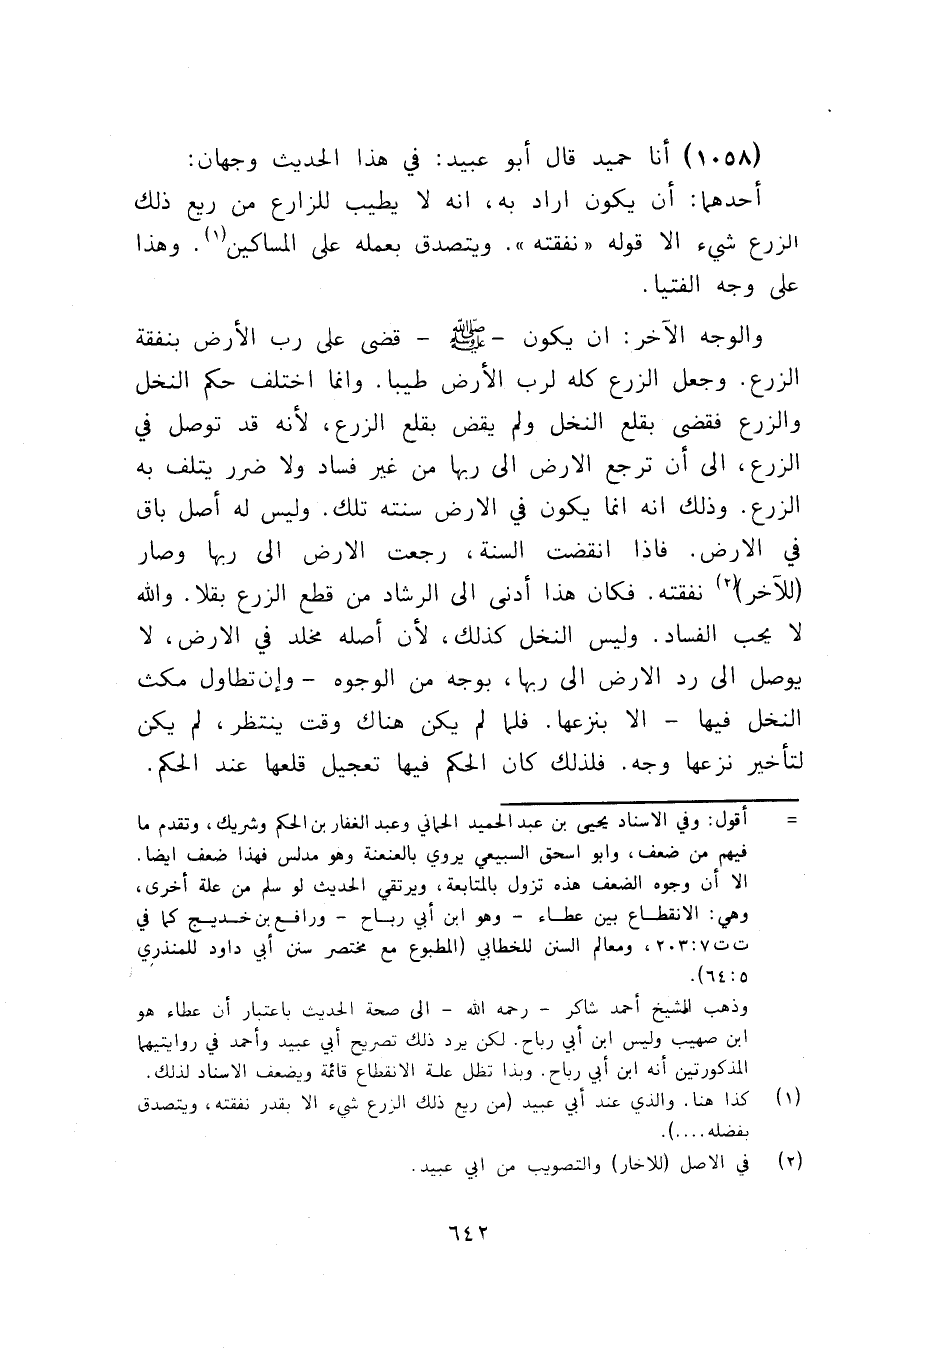 (١٠٥٨) أنا حميد قال أبو عبيد: في هذا الحديث وجهان:
أحدهما: أن يكون اراد به، انه لا يطيب للزارع من ريع ذلك
الزرع شيء الا قوله «نفقته». ويتصدق بعمله على المساكين(١). وهذا
على وجه الفتيا.
والوجه الآخر: ان يكون -ﷺ- قضى على رب الأرض بنفقة
الزرع. وجعل الزرع كله لرب الأرض طيبا. وانما اختلف حكم النخل
والزرع فقضى بقلع النخل ولم يقض بقلع الزرع، لأنه قد توصل في
الزرع، الى أن ترجع الارض الى ربها من غير فساد ولا ضرر يتلف به
الزرع. وذلك انه انما يكون في الارض سنته تلك. وليس له أصل باق
في الارض. فاذا انقضت السنة، رجعت الارض الى ربها وصار
(للآخر)(٢) نفقته. فكان هذا أدنى الى الرشاد من قطع الزرع بقلا. والله
لا يحب الفساد. وليس النخل كذلك، لأن أصله مخلد في الارض، لا
يوصل الى رد الارض الى ربها، بوجه من الوجوه - وإن تطاول مكث
النخل فيها - الا بنزعها. فلما لم يكن هناك وقت ينتظر، لم يكن
لتأخير نزعها وجه. فلذلك كان الحكم فيها تعجيل قلعها عند الحكم.
= أقول: وفي الاسناد يحيى بن عبد الحميد الحماني وعبد الغفار بن الحكم وشريك، وتقدم ما
فيهم من ضعف، وابو اسحق السبيعي يروي بالعنعنة وهو مدلس فهذا ضعف ايضا.
الا أن وجوه الضعف هذه تزول بالمتابعة، ويرتقي الحديث لو سلم من علة أخرى،
وهي: الانقطاع بين عطاء - وهو ابن أبي رباح - ورافع بن خديج كما في
ت ت ٧: ٢٠٣، ومعالم السنن للخطابي (المطبوع مع مختصر سنن أبي داود للمنذري
٥: ٦٤).
وذهب الشيخ أحمد شاكر - رحمه الله - الى صحة الحديث باعتبار أن عطاء هو
ابن صهيب وليس ابن أبي رباح. لكن يرد ذلك تصريح أبي عبيد وأحمد في روايتيهما
المذكورتين أنه ابن أبي رباح. وبذا تظل علة الانقطاع قائمة ويضعف الاسناد لذلك.
(١) كذا هنا. والذي عند أبي عبيد (من ريع ذلك الزرع شيء الا بقدر نفقته، ويتصدق
بفضله....).
(٢) في الاصل (للاخار) والتصويب من ابي عبيد.
٦٤٢